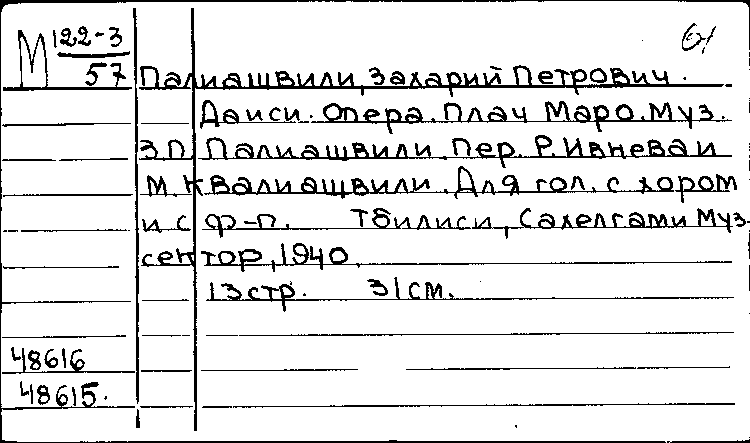 М 122-3
57
61
Палиашвили, Захарий Петрович.
Даиси. Опера. Плач Маро. Муз.
З.П. Палиашвили. Пер. Р. Ивнева и
М. Квалиашвили. Для гол. с хором
и с ф-п. Тбилиси, Сахелгами Муз.
сектор, 1940.
13 стр. 31 см.
48616
48615.